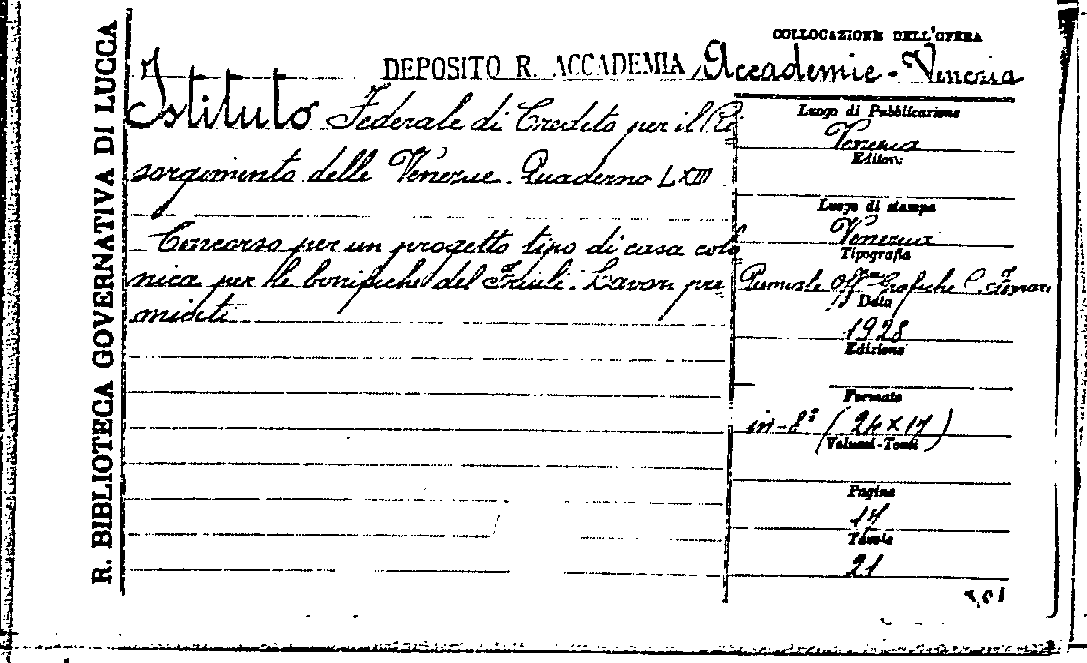 R. BIBLIOTECA GOVERNATIVA DI LUCCA
COLLOCAZIONE DELL'OPERA
DEPOSITO R. ACCADEMIA Accademie - Venezia
Istituto Federale di Credito per il Ri
sorgimento delle Venezie. Quaderno LXIII
Concorso per un progetto tipo di casa colo
nica per le bonifiche del Friuli. Lavori pre
miati
Luogo di Pubblicazione
Venezia
Editore
Luogo di stampa
Venezia
Tipografia
Premiate Off. Grafiche C. Ferrari
Data
1928
Edizione
Formato
in-8° (24 x 17)
Volumi-Tomi
Pagine
17
Tavole
21